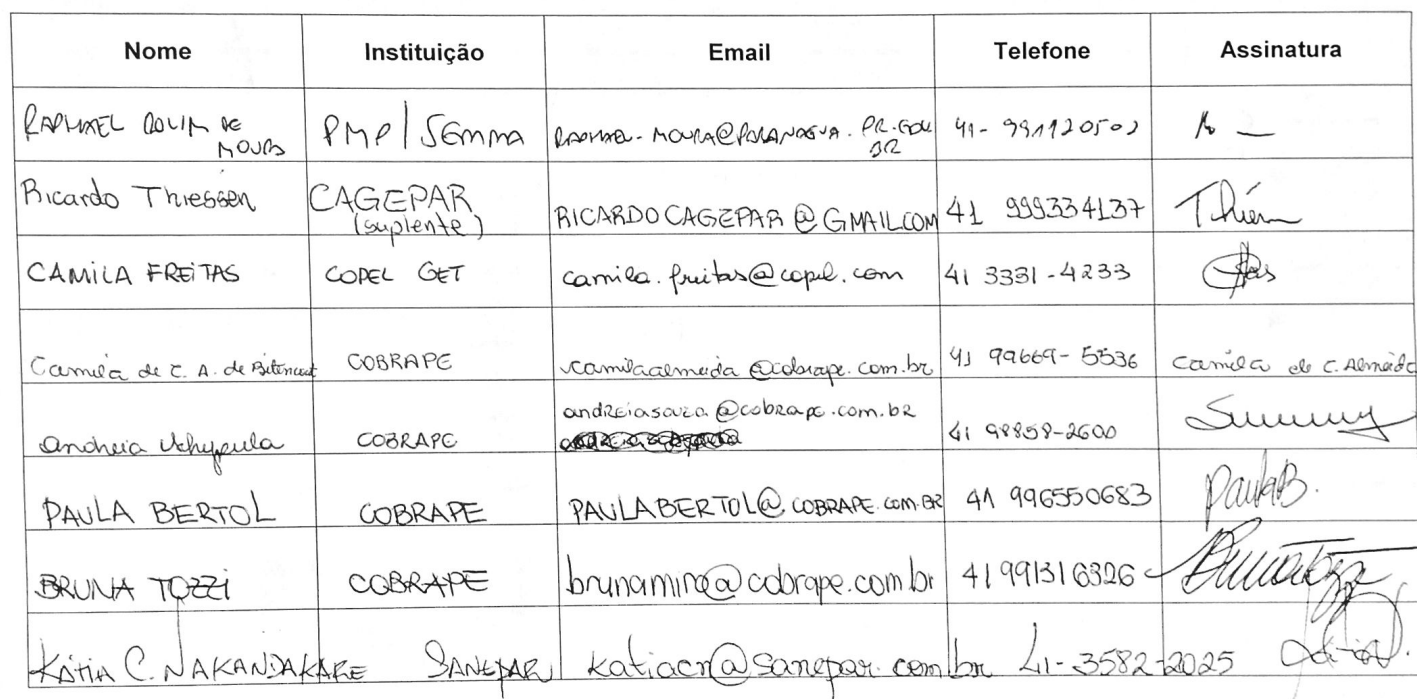 Nome Instituição Email Telefone Assinatura
RAPHAEL ROLIM DE MOURA PMP/SEMMA RAPHAEL.MOURA@PARANAGUA.PR.GOV.BR 41-991120502
Ricardo Thiessen CAGEPAR (suplente) RICARDOCAGEPAR@GMAIL.COM 41 999334137
CAMILA FREITAS COPEL GET camila.freitas@copel.com 41 3331-4233
Camila de C. A. de Bitencourt COBRAPE camilaalmeida@cobrape.com.br 41 99669-5536 Camila de C. Almeida
COBRAPE andreiasouza@cobrape.com.br 41 98858-2600
PAULA BERTOL COBRAPE PAULABERTOL@COBRAPE.COM.BR 41 996550683 PaulaB.
BRUNA TOZZI COBRAPE brunamina@cobrape.com.br 41 991316326
KÁTIA C. NAKANDAKARE SANEPAR katiacn@sanepar.com.br 41-3582-2025